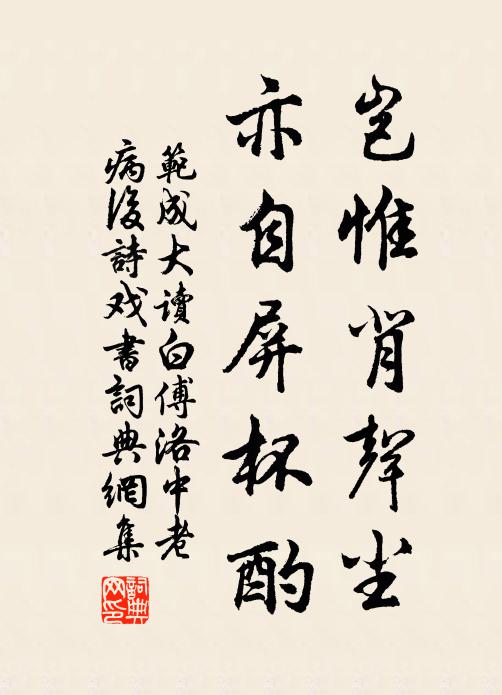 岂惟背聲尘
亦自屏杯酌
範成大讀白傅洛中老
病後詩戏書詞典網集
詞典
网印